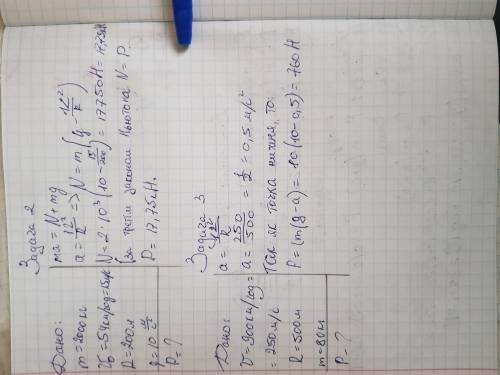 Задача 2
Дано:
m = 2000 кг
υ₀ = 54 км/год = 15 м/с
R = 200 м
g = 10 м/с²
P = ?
ma = N + mg
a = υ²/R => N = m(g - υ²/R)
N = 2·10³(10 - 15²/200) = 17750 Н = 17,75 кН
За третім законом Ньютона N = P.
P = 17,75 кН.
Задача 3
Дано:
υ = 900 км/год =
= 250 м/с
R = 500 м
m = 80 кг
P - ?
a = υ²/R
a = 250/500 = 1/2 = 0,5 м/с²
Так як точка нижня, то:
P = (m(g-a) = 80(10-0,5) = 760 Н